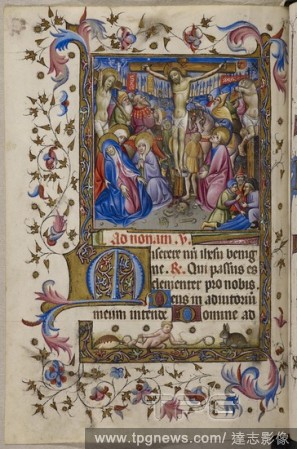 ad nonam. v.
Miserere nri ihesu benig
ne. &. Qui passus es
clementer pro nobis
Deus in adiutorium
meum intende Domine ad
TPG
www.tpgnews.com/ 達志影像